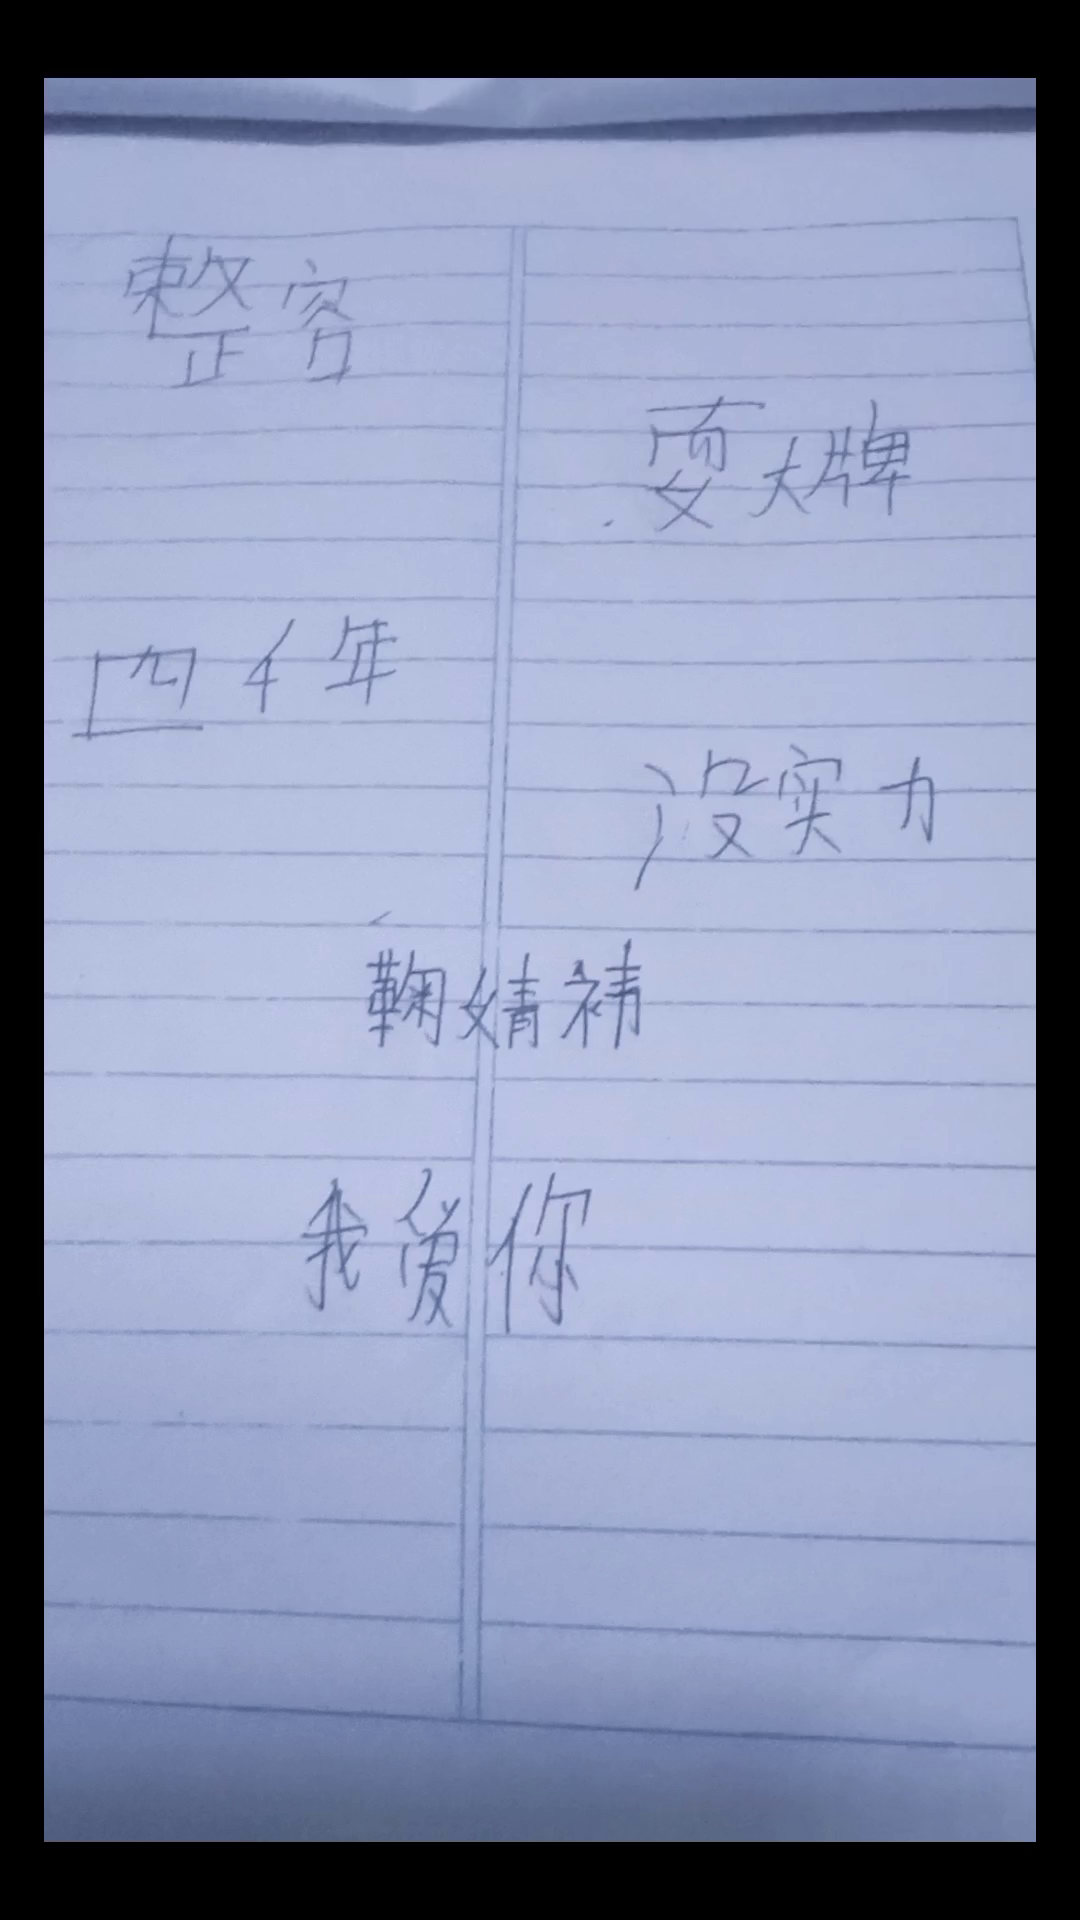 整容
耍大牌
四千年
没实力
鞠婧祎
我爱你